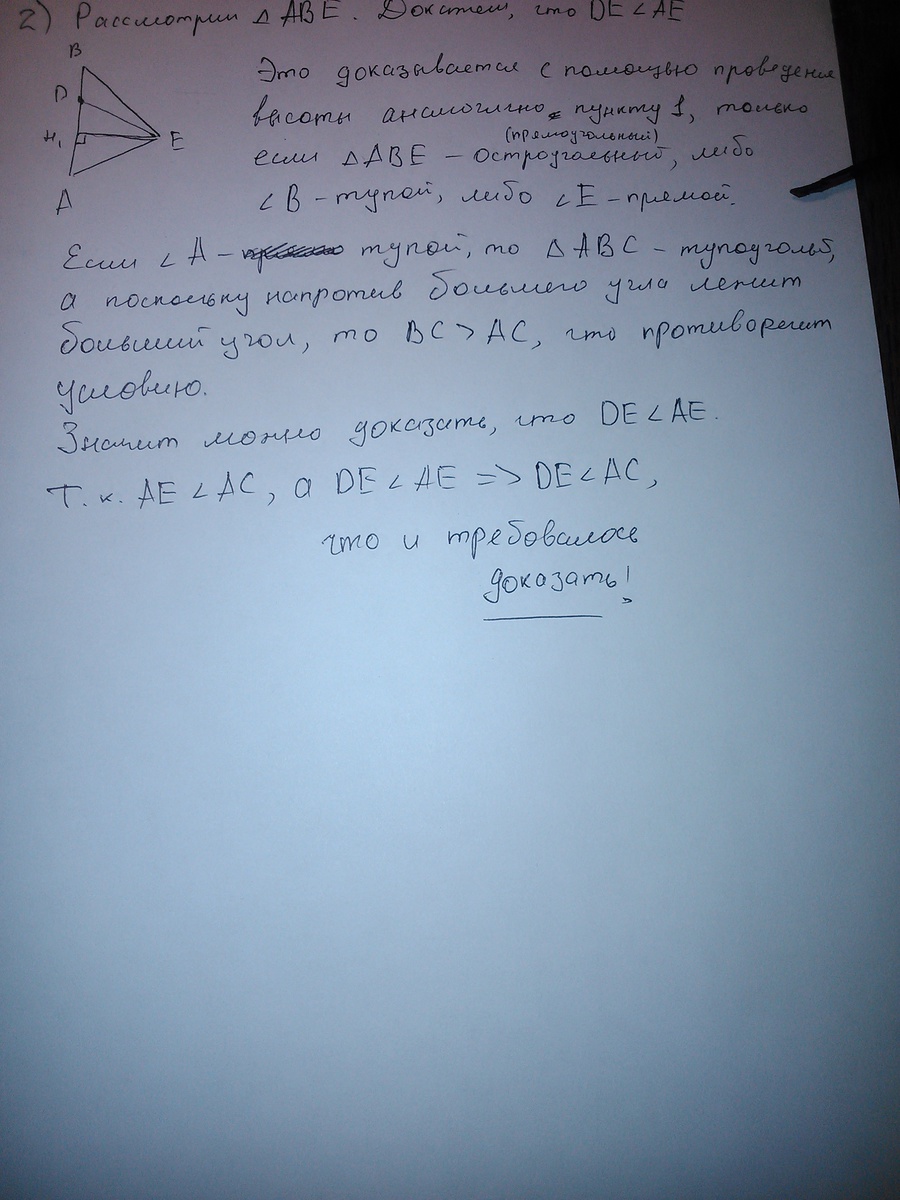 2) Рассмотрим △ ABE. Докажем, что DE < AE
B
D
H₁
E
A
Это доказывается с помощью проведения
высоты аналогично пункту 1, только
(прямоугольный)
если △ABE – остроугольный, либо
∠B – тупой, либо ∠E – прямой.
Если ∠A – тупой, то △ABC – тупоугольн,
а поскольку напротив большего угла лежит
больший угол, то BC > AC, что противоречит
условию.
Значит можно доказать, что DE < AE.
Т. к. AE < AC, а DE < AE => DE < AC,
что и требовалось
доказать!